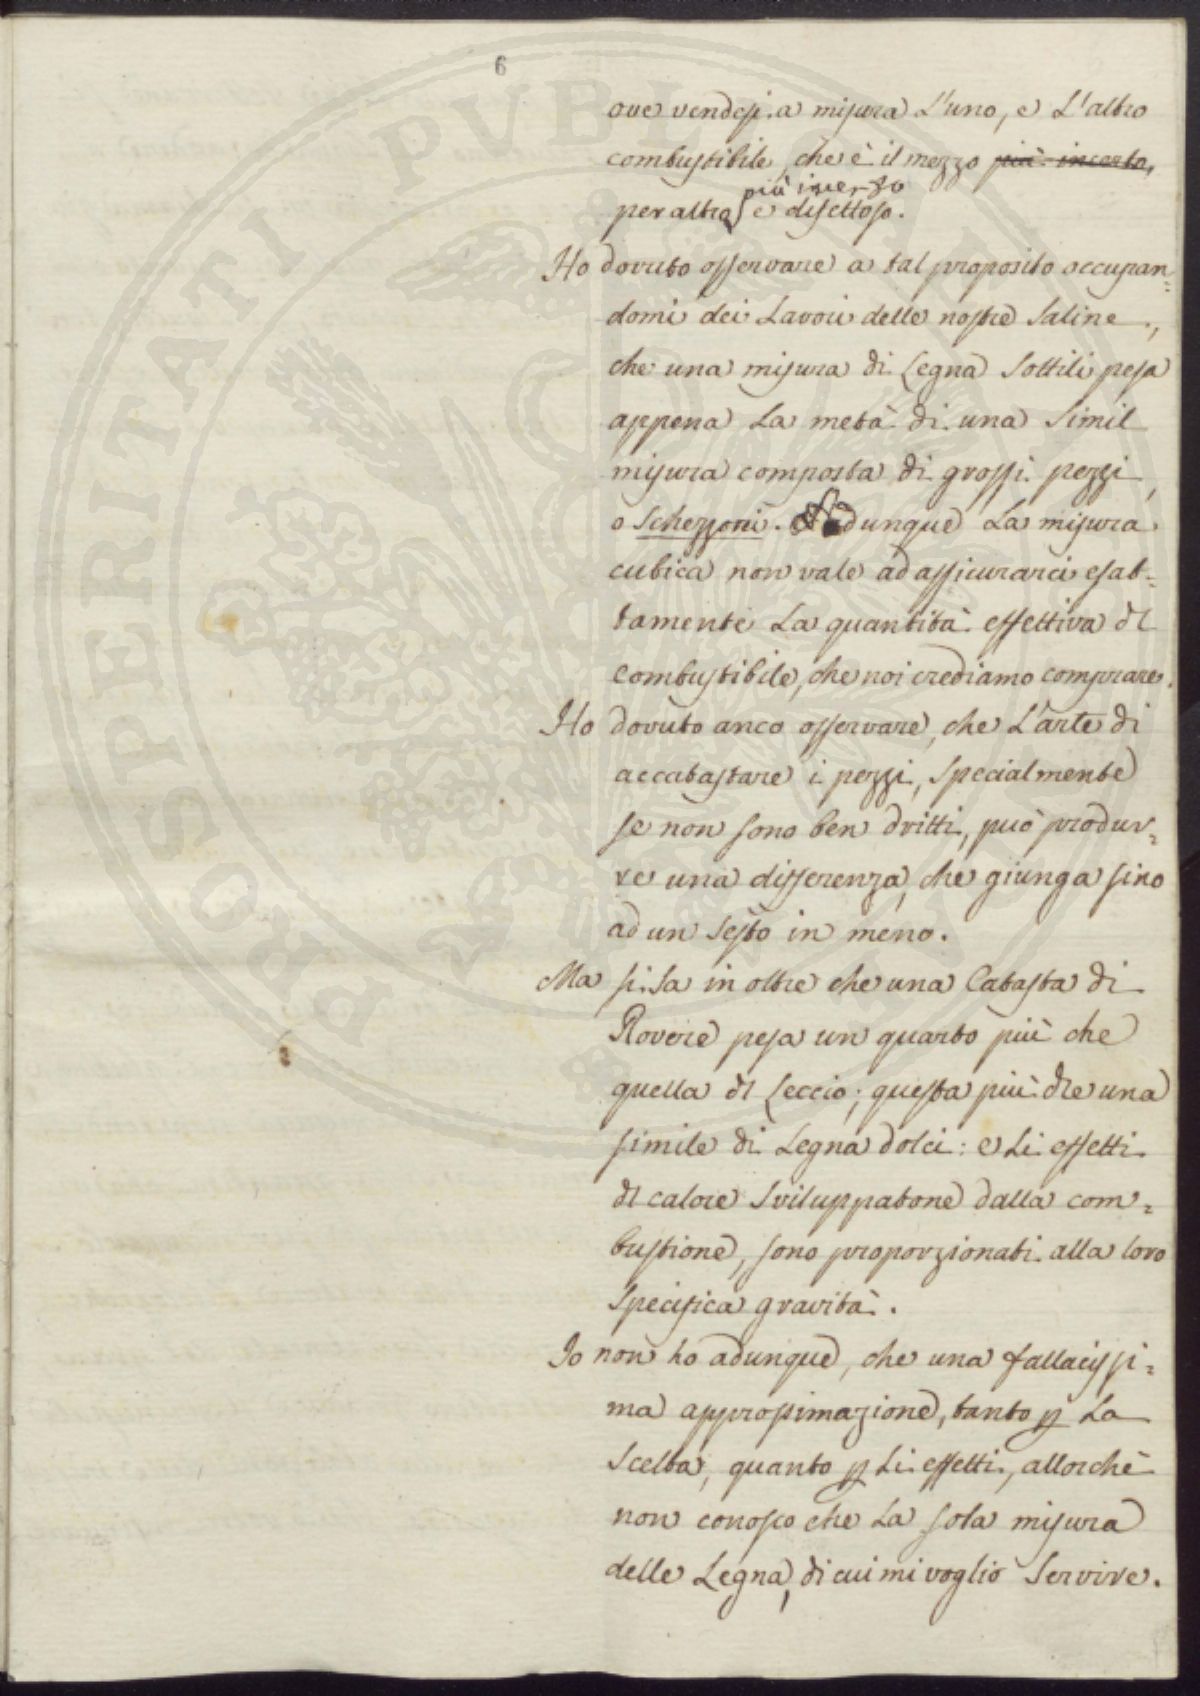 6
ove vendesi a misura L'uno, e L'altro
combustibile, che è il mezzo più incerto,
più incerto
per altro e difettoso.
Ho dovuto osservare a tal proposito occupan=
domi dei Lavori delle nostre Saline,
che una misura di Legna Sottili pesa
appena La metà di una Simil
misura composta di grossi pezzi,
o Schezzoni. Adunque La misura
cubica non vale ad assicurarci esat=
tamente La quantità effettiva di
combustibile, che noi crediamo comprare.
Ho dovuto anco osservare, che L'arte di
accatastare i pezzi, Specialmente
se non sono ben dritti, può produr=
re una differenza, che giunga sino
ad un Sesto in meno.
Ma si sa in oltre che una Catasta di
Rovere pesa un quarto più che
quella di Leccio; questa più che una
simile di Legna dolci: e Li effetti
di calore Sviluppatone dalla com=
bustione, sono proporzionati alla loro
Specifica gravità.
Io non ho adunque, che una fallacissi=
ma approssimazione, tanto p La
Scelta, quanto p Li effetti, allorchè
non conosco che La sola misura
delle Legna, di cui mi voglio Servire.
PROSPERITATI PVBLICAE